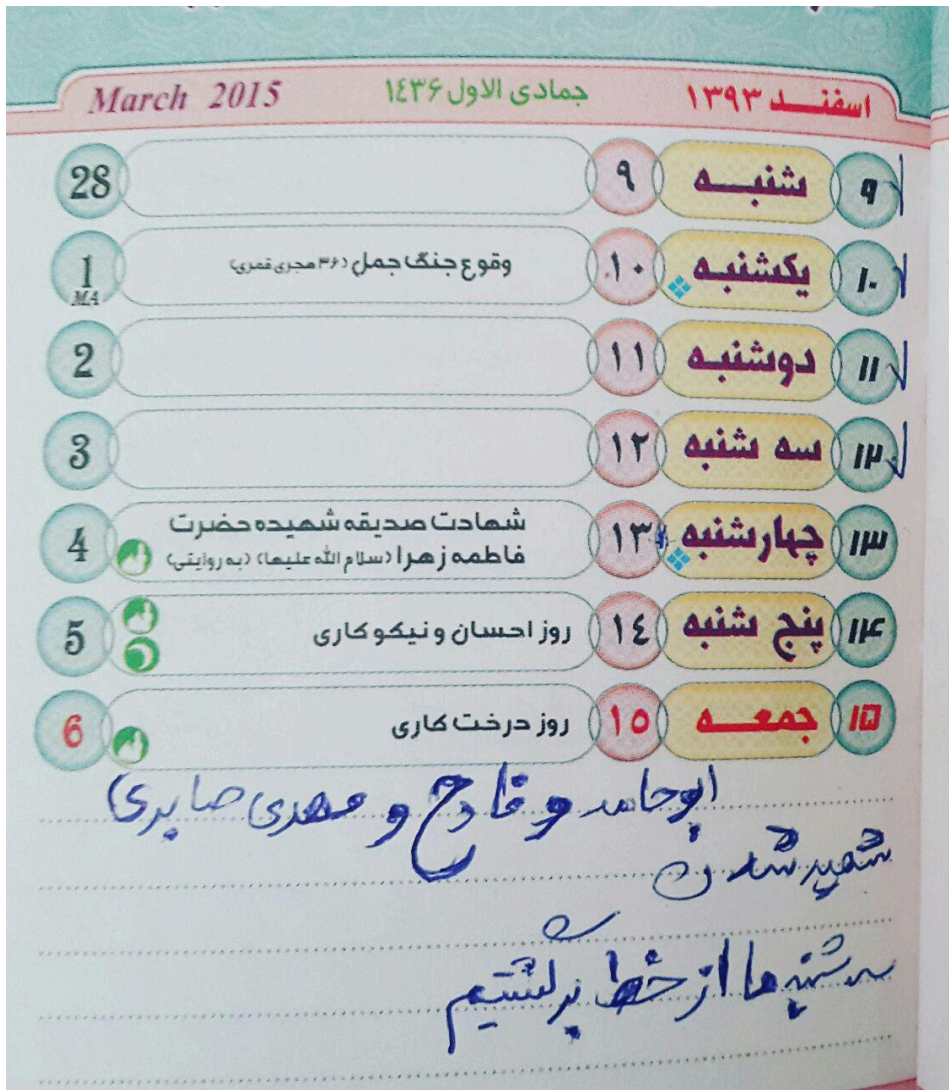 اسفند ۱۳۹۳ جمادی الاول ۱٤۳۶ March 2015
۹ شنبه ۹ 28
۱۰ یکشنبه ۱۰ وقوع جنگ جمل (۳۶ هجری قمری) 1 MA
۱۱ دوشنبه ۱۱ 2
۱۲ سه شنبه ۱۲ 3
۱۳ چهارشنبه ۱۳ شهادت صدیقه شهیده حضرت
فاطمه زهرا (سلام الله علیها) (به روایتی) 4
۱۴ پنج شنبه ۱٤ روز احسان و نیکوکاری 5
۱۵ جمعه ۱۵ روز درخت کاری 6
ابوحامد و فاتح و مهدی صابری
شهید شدن
سه شنبه ما از خط برگشتیم